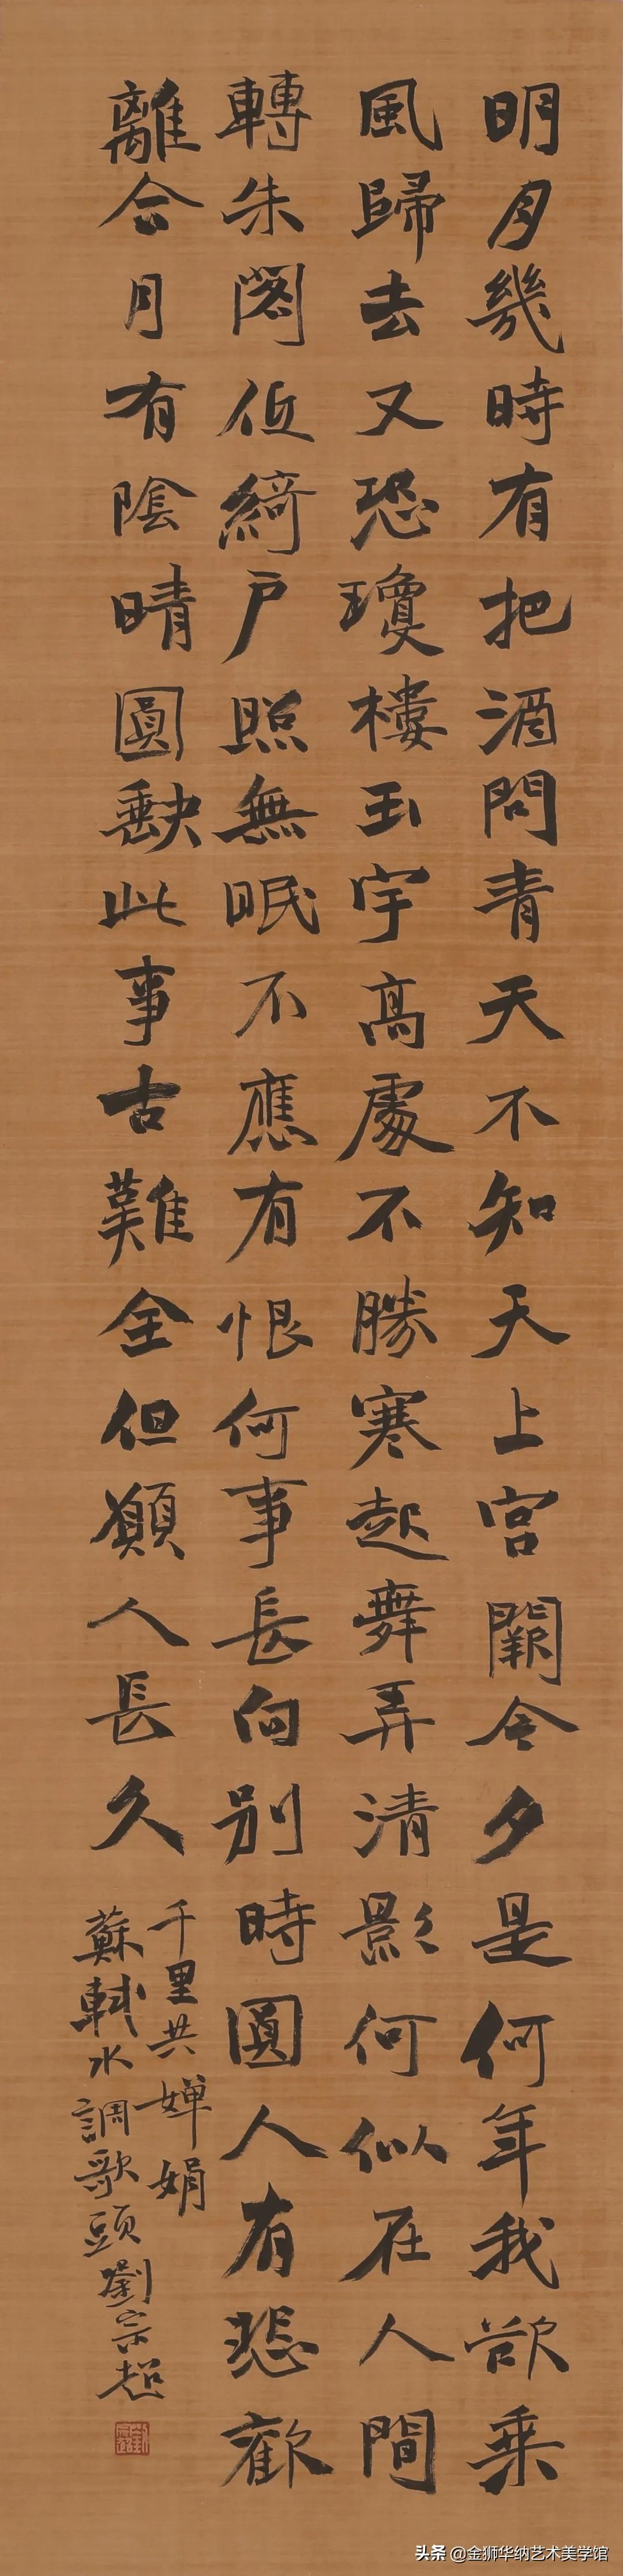 明月幾時有把酒問青天不知天上宮闕今夕是何年我欲乘
風歸去又恐瓊樓玉宇高處不勝寒起舞弄清影何似在人間
轉朱閣低綺戶照無眠不應有恨何事長向別時圓人有悲歡
離合月有陰晴圓缺此事古難全但願人長久
千里共嬋娟
蘇軾水調歌頭劉宗超
头条 @金狮华纳艺术美学馆